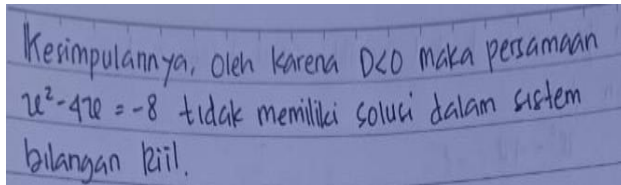 Kesimpulannya, oleh karena D<0 maka persamaan
x²-4x = -8 tidak memiliki solusi dalam sistem
bilangan Riil.